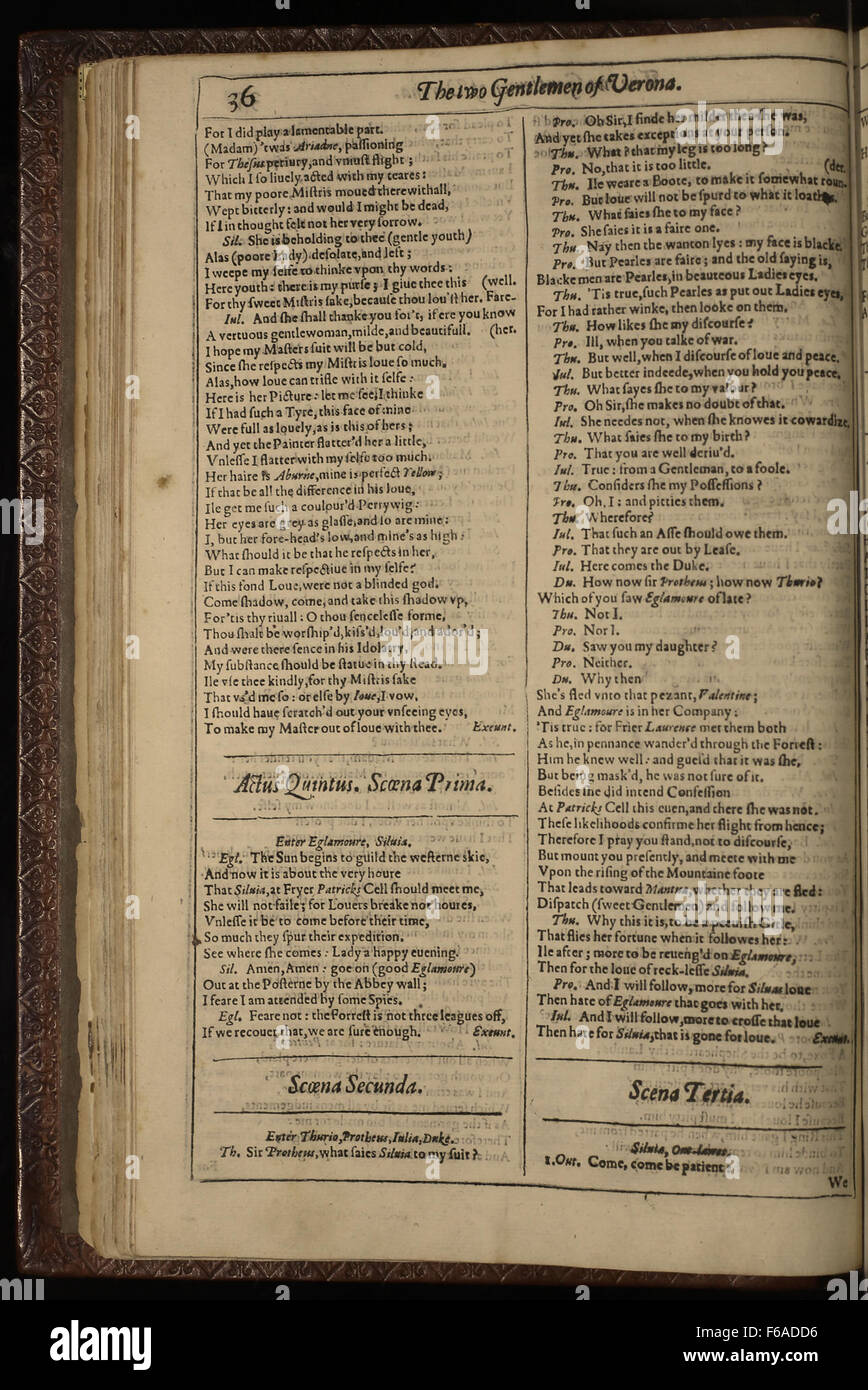 36
The two Gentlemen of Verona.
For I did play a lamentable part.
(Madam) 'twas Ariadne, passioning
For Thesus periury, and vniust flight;
Which I so liuely acted with my teares:
That my poore Mistris moued therewithall,
Wept bitterly: and would I might be dead,
If I in thought felt not her very sorrow.
Sil. She is beholding to thee (gentle youth)
Alas (poore Lady) desolate, and left;
I weepe my selfe to thinke vpon thy words:
Here youth: there is my purse; I giue thee this (well.
For thy sweet Mistris sake, because thou lou'st her. Fare-
Iul. And she shall thanke you for't, if ere you know
A vertuous gentlewoman, milde, and beautifull. (her.
I hope my Masters suit will be but cold,
Since she respects my Mistris loue so much.
Alas, how loue can trifle with it selfe:
Here is her Picture: let me see, I thinke
If I had such a Tyre, this face of mine
Were full as louely, as is this of hers;
And yet the Painter flatter'd her a little,
Vnlesse I flatter with my selfe too much.
Her haire is Aburne, mine is perfect Yellow;
If that be all the difference in his loue,
Ile get me such a coulour'd Perrywig:
Her eyes are grey as glasse, and so are mine:
I, but her fore-head's low, and mine's as high:
What should it be that he respects in her,
But I can make respectiue in my selfe?
If this fond Loue, were not a blinded god.
Come shadow, come, and take this shadow vp,
For 'tis thy riuall: O thou sencelesse forme,
Thou shalt be worship'd, kiss'd, lou'd, and ador'd;
And were there sence in his Idolatry,
My substance should be statue in thy stead.
Ile vse thee kindly, for thy Mistris sake
That vs'd me so: or else by Ioue, I vow,
I should haue scratch'd out your vnseeing eyes,
To make my Master out of loue with thee. Exeunt.
Actus Quintus. Scœna Prima.
Enter Eglamoure, Siluia.
Egl. The Sun begins to guild the westerne skie,
And now it is about the very houre
That Siluia, at Fryer Patricks Cell should meet me,
She will not faile; for Louers breake not houres,
Vnlesse it be to come before their time,
So much they spur their expedition.
See where she comes: Lady a happy euening.
Sil. Amen, Amen: goe on (good Eglamoure)
Out at the Posterne by the Abbey wall;
I feare I am attended by some Spies.
Egl. Feare not: the Forrest is not three leagues off,
If we recouer that, we are sure enough. Exeunt.
Scœna Secunda.
Enter Thurio, Protheus, Iulia, Duke.
Th. Sir Protheus, what saies Siluia to my suit?
Pro. Oh Sir, I finde her milder then she was,
And yet she takes exceptions at your person.
Thu. What? that my leg is too long?
Pro. No, that it is too little. (der.
Thu. Ile weare a Boote, to make it somewhat roun-
Pro. But loue will not be spurd to what it loathes.
Thu. What saies she to my face?
Pro. She saies it is a faire one.
Thu. Nay then the wanton lyes: my face is blacke.
Pro. But Pearles are faire; and the old saying is,
Blacke men are Pearles, in beauteous Ladies eyes.
Thu. 'Tis true, such Pearles as put out Ladies eyes,
For I had rather winke, then looke on them.
Thu. How likes she my discourse?
Pro. Ill, when you talke of war.
Thu. But well, when I discourse of loue and peace.
Iul. But better indeede, when you hold you peace.
Thu. What sayes she to my valour?
Pro. Oh Sir, she makes no doubt of that.
Iul. She needes not, when she knowes it cowardize.
Thu. What saies she to my birth?
Pro. That you are well deriu'd.
Iul. True: from a Gentleman, to a foole.
Thu. Considers she my Possessions?
Pro. Oh, I: and pitties them.
Thu. Wherefore?
Iul. That such an Asse should owe them.
Pro. That they are out by Lease.
Iul. Here comes the Duke.
Du. How now sir Protheus; how now Thurio?
Which of you saw Eglamoure of late?
Thu. Not I.
Pro. Nor I.
Du. Saw you my daughter?
Pro. Neither.
Du. Why then
She's fled vnto that pezant, Valentine;
And Eglamoure is in her Company:
'Tis true: for Frier Laurence met them both
As he, in pennance wander'd through the Forrest:
Him he knew well: and guesd that it was she,
But being mask'd, he was not sure of it.
Besides she did intend Confession
At Patricks Cell this euen, and there she was not.
These likelihoods confirme her flight from hence;
Therefore I pray you stand, not to discourse,
But mount you presently, and meete with me
Vpon the rising of the Mountaine foote
That leads toward Mantua, whether they are fled:
Dispatch (sweet Gentlemen) and follow me.
Thu. Why this it is, to be a peeuish Girle,
That flies her fortune when it followes her:
Ile after; more to be reueng'd on Eglamoure,
Then for the loue of reck-lesse Siluia.
Pro. And I will follow, more for Siluas loue
Then hate of Eglamoure that goes with her.
Iul. And I will follow, more to crosse that loue
Then hate for Siluia, that is gone for loue. Exeunt.
Scena Tertia.
Siluia, Out-lawes.
1.Out. Come, come be patient
We
alamy
Image ID: F6ADD6
www.alamy.com